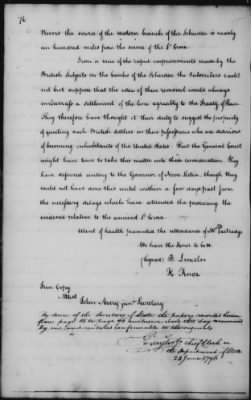 76
Rivers the source of the western branch of the Schudiac is nearly
an hundred miles from the source of the St Croix
From a view of the rapid improvements made by the
British Subjects on the banks of the Schudiac the Subscribers could
not but suppose that the idea of their removal would always
embarrass a settlement of the line agreably to the Treaty of Peace.
They therefore have thought it their duty to suggest the propriety
of quieting such British settlers in their possessions who are desirous
of becoming inhabitants of the United States. But the General Court
might have time to take this matter into their consideration they
have deferred writing to the Governor of Nova Scotia, though they
could not have done that until within a few days past from
the necessary delays which have attended the procuring the
evidence relative to the ancient St Croix.
Want of health prevented the attendance of Mr Partridge
We have the honor to be &c.
(Signed) B. Lincoln
H. Knox
True Copy
Attest
John Avery junr Secretary
By order of the Secretary of State the papers recorded from
page to page inclusive have this day been examined
by me, and made conformable to the originals
Geo: Taylor Jr Chief Clerk in
the Department of State
23 June 1796